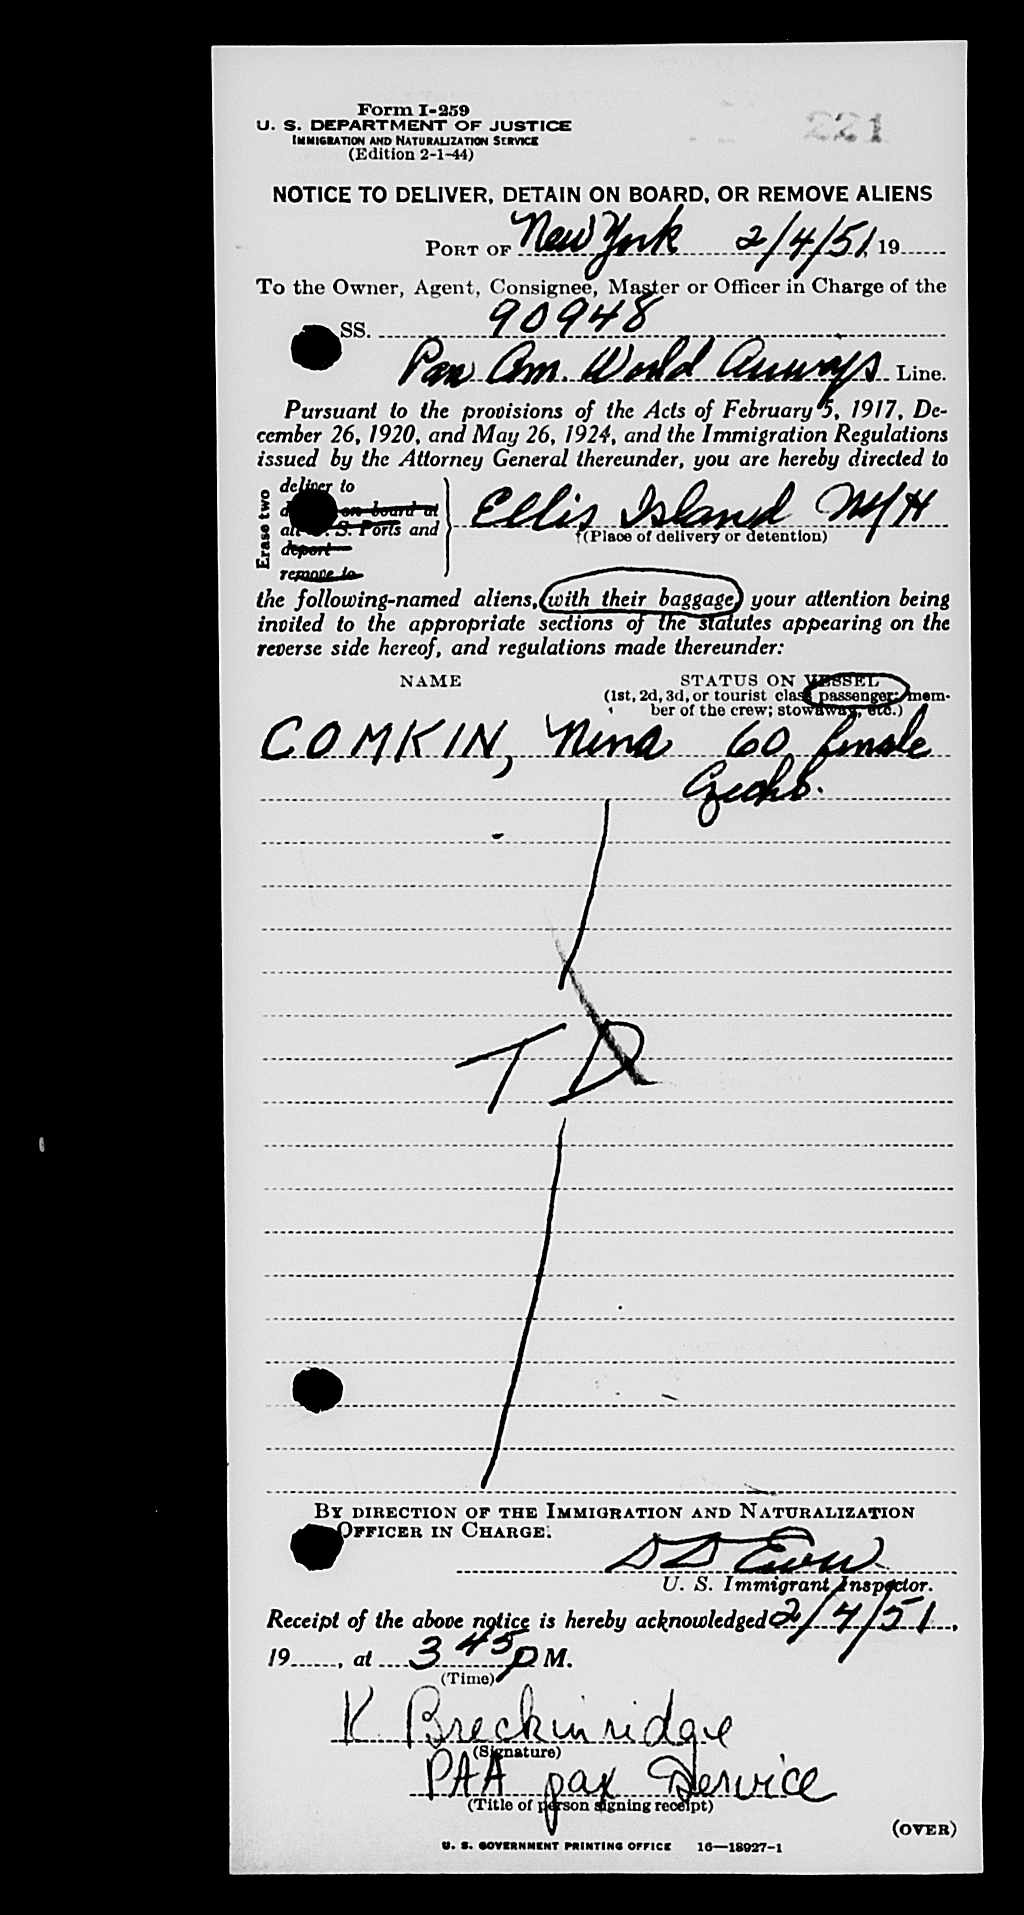 Form I-259
U. S. DEPARTMENT OF JUSTICE
IMMIGRATION AND NATURALIZATION SERVICE
(Edition 2-1-44)
221
NOTICE TO DELIVER, DETAIN ON BOARD, OR REMOVE ALIENS
PORT OF New York 2/4/51, 19
To the Owner, Agent, Consignee, Master or Officer in Charge of the
SS. 90948
Pan Am. World Airways Line.
Pursuant to the provisions of the Acts of February 5, 1917, De-
cember 26, 1920, and May 26, 1924, and the Immigration Regulations
issued by the Attorney General thereunder, you are hereby directed to
Erase two
deliver to
on board at
all U. S. Ports and
deport
remove to
Ellis Island M/H
†(Place of delivery or detention)
the following-named aliens, with their baggage, your attention being
invited to the appropriate sections of the statutes appearing on the
reverse side hereof, and regulations made thereunder:
NAME STATUS ON VESSEL
(1st, 2d, 3d, or tourist class passenger; mem-
ber of the crew; stowaway, etc.)
COMKIN, Nina 60 female
Czechs.
TD
BY DIRECTION OF THE IMMIGRATION AND NATURALIZATION
OFFICER IN CHARGE:
U. S. Immigrant Inspector.
Receipt of the above notice is hereby acknowledged 2/4/51,
19......, at 3 45 P M.
(Time)
K Breckinridge
(Signature)
PAA pax Service
(Title of person signing receipt)
(OVER)
U. S. GOVERNMENT PRINTING OFFICE 16—18927-1